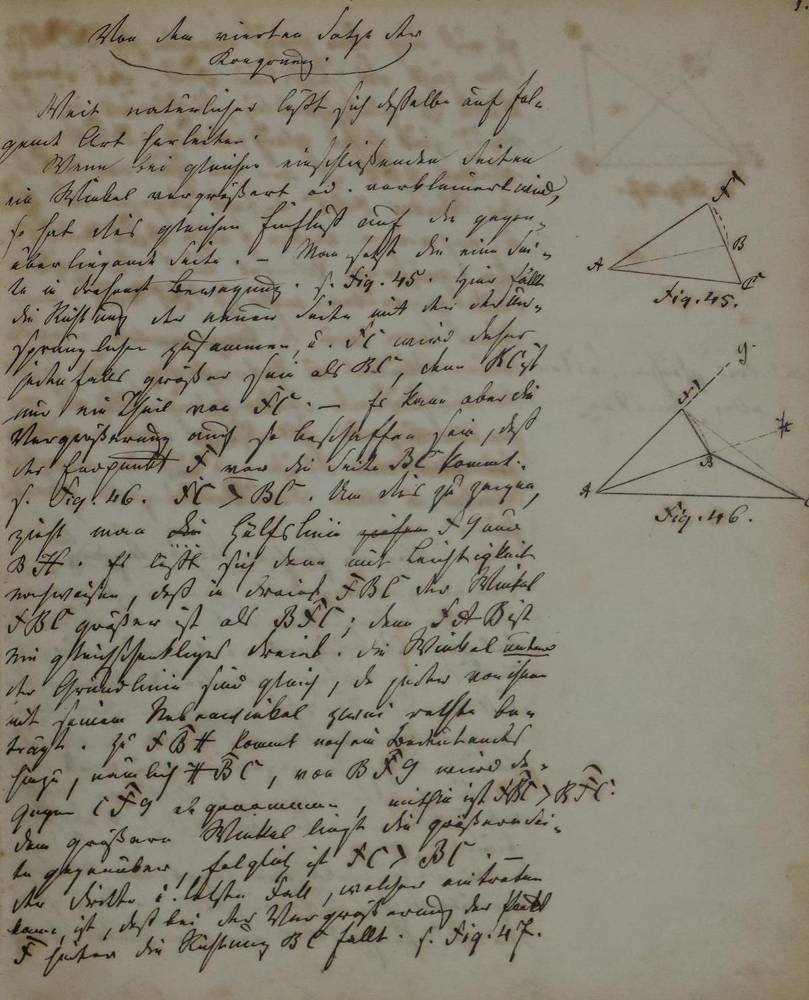 Von dem vierten Satze der
Kongruenz.
Weit natürlicher läßt sich derselbe auf fol-
gende Art herleiten.
Wenn bei gleichen einschließenden Seiten
ein Winkel vergrößert od. verkleinert wird,
so hat dies gleichen Einfluß auf die gegen-
überliegende Seite. – Man setzt die eine Sei-
te in drehende Bewegung. s. Fig. 45. Hier fällt
die Richtung der neuen Seite mit der der ur-
sprünglichen zusammen, u. FC wird daher
jedenfalls größer sein als BC, denn BC ist
nur ein Theil von FC. – Es kann aber die
Vergrößerung auch so beschaffen sein, daß
der Endpunkt F vor die Seite BC kommt.
s. Fig. 46. FC > BC. Um dies zu zeigen,
zieht man die Hülfslinie FG und
BH. Es läßt sich dann mit Leichtigkeit
nachweisen, daß in dreieck FBC der Winkel
FBC größer ist als BFC; denn FAB ist
ein gleichschenkliges Dreieck. die Winkel unter
der Grundlinie sind gleich, da jeder von ihnen
mit seinem Nebenwinkel zwei rechte be-
trägt. Zu FBH kommt noch ein Bedeutendes
hinzu, nämlich HBC, von BFG wird da-
gegen CFG abgenommen, mithin ist FBC > BFC.
dem größern Winkel liegt die größere Sei-
te gegenüber, folglich ist FC > BC. –
der dritte u. letzte Fall, welcher eintreten
kann, ist, daß bei der Vergrößerung der Punkt
F hinter die Richtung BC fällt. s. Fig. 47.
F
A
B
C
Fig. 45.
G
F
H
B
A
Fig. 46.